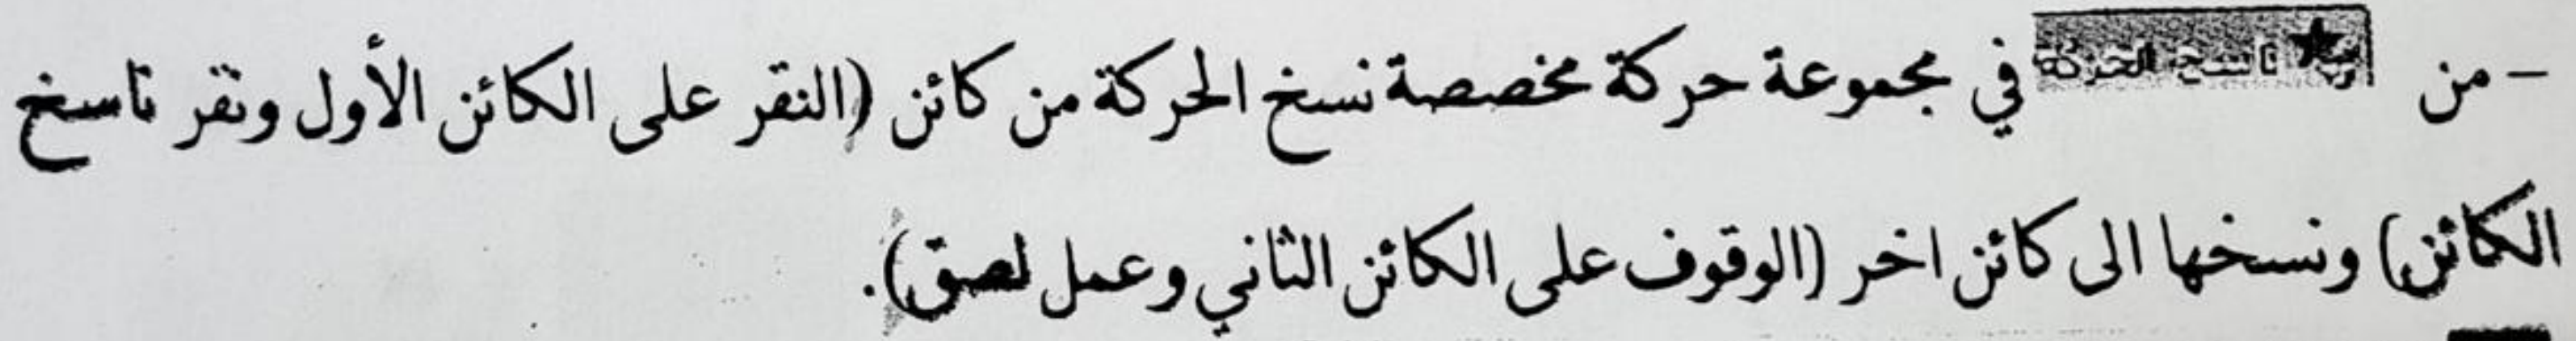 - من ناسخ الحركة في مجموعة حركة مخصصة نسخ الحركة من كائن (النقر على الكائن الأول ونقر ناسخ
الكائن) ونسخها الى كائن اخر (الوقوف على الكائن الثاني وعمل لصق).